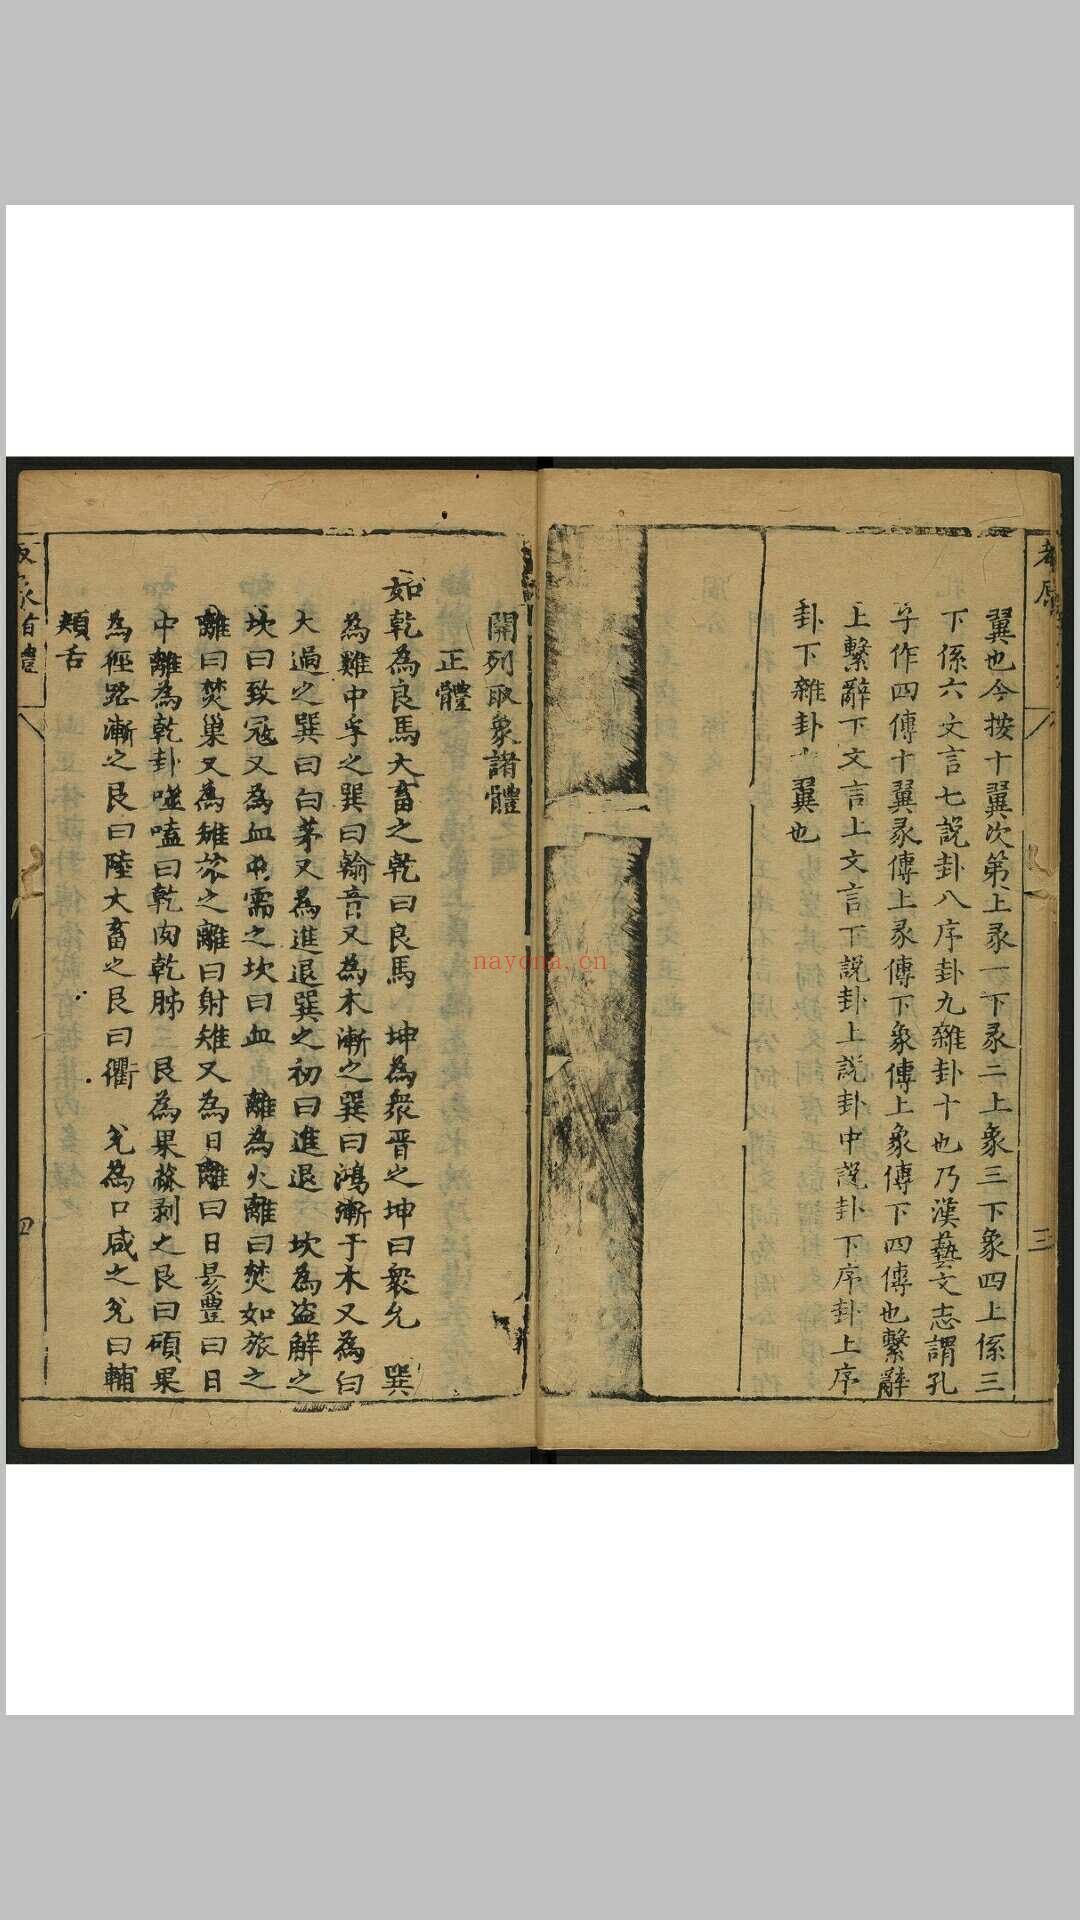 翼也今按十翼次第上彖一下彖二上象三下象四上係三
下係六文言七說卦八序卦九雜卦十也乃漢藝文志謂孔
子作四傳十翼彖傳上彖傳下象傳上象傳下四傳也繫辭
上繫辭下文言上文言下說卦上說卦中說卦下序卦上序
卦下雜卦十翼也
三
開列取象諸體
正體
如乾為良馬大畜之乾曰良馬 坤為衆晋之坤曰衆允 巽
為雞中孚之巽曰翰音又為木漸之巽曰鴻漸于木又為白
大過之巽曰白茅又為進退巽之初曰進退 坎為盗解之
坎曰致冦又為血卦需之坎曰血 離為火離曰焚如旅之
離曰焚巢又為雉旅之離曰射雉又為日離曰日昃豐曰日
中離為乾卦噬嗑曰乾肉乾胏 艮為果蓏剥之艮曰碩果
為徑路漸之艮曰陸大畜之艮曰衢 兊為口咸之兊曰輔
頰舌
四
nayona.cn